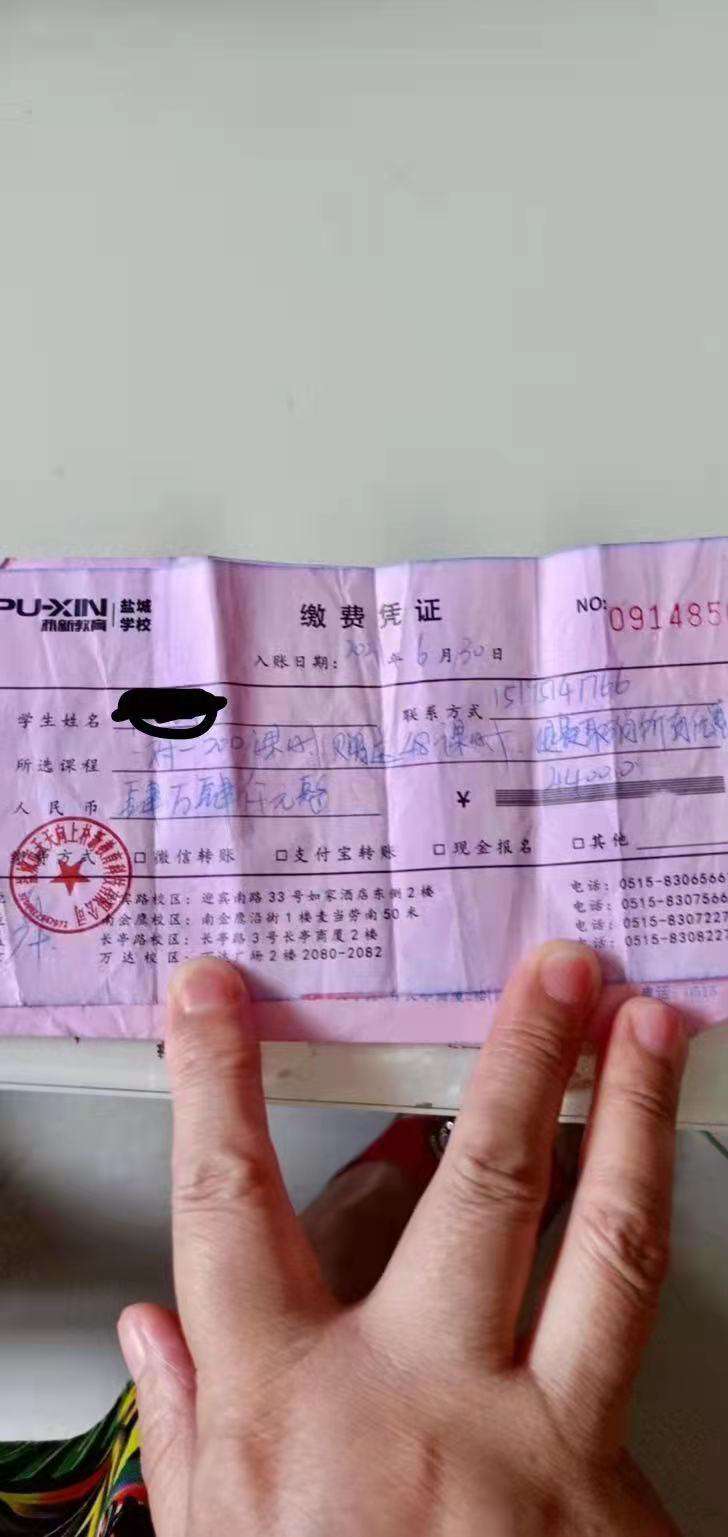 PU-XIN 朴新教育 盐城学校
缴费凭证
NO: 091485
入账日期: 年 6 月 30 日
学生姓名
联系方式 15175141766
所选课程 一对一200课时 赠送48课时
人民币 肆万肆仟元整 ¥ 44000
缴费方式 □微信转账 □支付宝转账 □现金报名 □其他
路校区: 迎宾南路 33 号如家酒店东侧 2 楼 电话: 0515-8306566
南金鹰校区: 南金鹰沿街 1 楼麦当劳南 50 米 电话: 0515-8307566
长亭路校区: 长亭路 3 号长亭商厦 2 楼 电话: 0515-8307227
万达校区: 万达广场 2 楼 2080-2082 电话: 0515-8308227